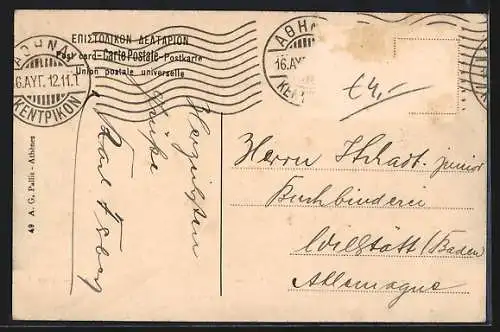 ΕΠΙΣΤΟΛΙΚΟΝ ΔΕΛΤΑΡΙΟΝ
Post card - Carte Postale - Postkarte
Union postale universelle
ΑΘΗΝΑΙ
16.ΑΥΓ. 12.11.
ΚΕΝΤΡΙΚΟΝ
ΑΘΗΝΑ
16.ΑΥΓ
ΚΕΝΤ
£4,-
Herzlichen
Grüße
Karl
Herrn Schadt. junior
Buchbinderei
Willstätt / (Baden)
Allemagne
49 A. G. Pallis - Athènes